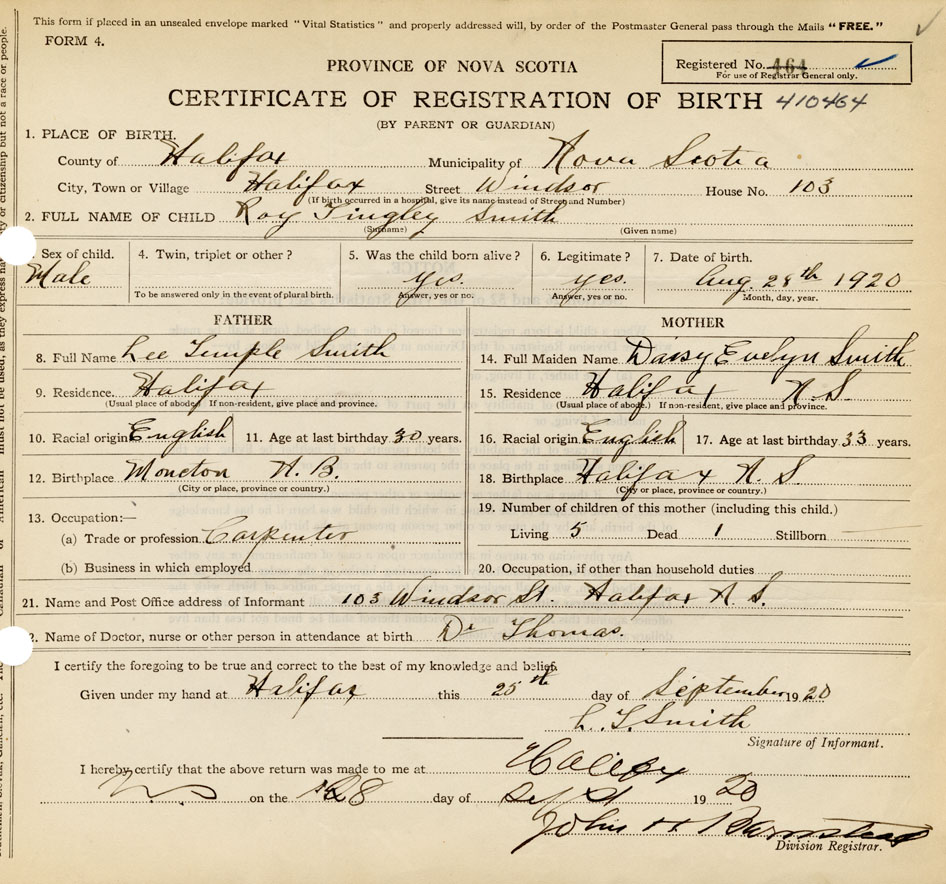 This form if placed in an unsealed envelope marked "Vital Statistics" and properly addressed will, by order of the Postmaster General pass through the Mails "FREE."
FORM 4.
Registered No. 464
For use of Registrar General only.
PROVINCE OF NOVA SCOTIA
CERTIFICATE OF REGISTRATION OF BIRTH 410464
(BY PARENT OR GUARDIAN)
1. PLACE OF BIRTH.
County of Halifax Municipality of Nova Scotia
City, Town or Village Halifax Street Windsor House No. 103
(If birth occurred in a hospital, give its name instead of Street and Number)
2. FULL NAME OF CHILD Roy Tingley Smith
(Surname) (Given name)
Sex of child. 4. Twin, triplet or other? 5. Was the child born alive? 6. Legitimate? 7. Date of birth.
Male yes. yes. Aug. 28th 1920
To be answered only in the event of plural birth. Answer, yes or no. Answer, yes or no. Month, day, year.
FATHER MOTHER
8. Full Name Lee Temple Smith 14. Full Maiden Name Daisy Evelyn Smith
9. Residence Halifax 15. Residence Halifax N.S.
(Usual place of abode.) If non-resident, give place and province. (Usual place of abode.) If non-resident, give place and province.
10. Racial origin English 11. Age at last birthday 30 years. 16. Racial origin English 17. Age at last birthday 33 years.
12. Birthplace Moncton N.B. 18. Birthplace Halifax N.S
(City or place, province or country.) (City or place, province or country.)
13. Occupation:— 19. Number of children of this mother (including this child.)
(a) Trade or profession Carpenter Living 5 Dead 1 Stillborn
(b) Business in which employed 20. Occupation, if other than household duties
21. Name and Post Office address of Informant 103 Windsor St. Halifax N.S.
2. Name of Doctor, nurse or other person in attendance at birth Dr Thomas.
I certify the foregoing to be true and correct to the best of my knowledge and belief.
Given under my hand at Halifax this 25th day of September 1920
L. T. Smith
Signature of Informant.
I hereby certify that the above return was made to me at Halifax
N.S on the 28 day of Sept 1920
John H Barnstead
Division Registrar.